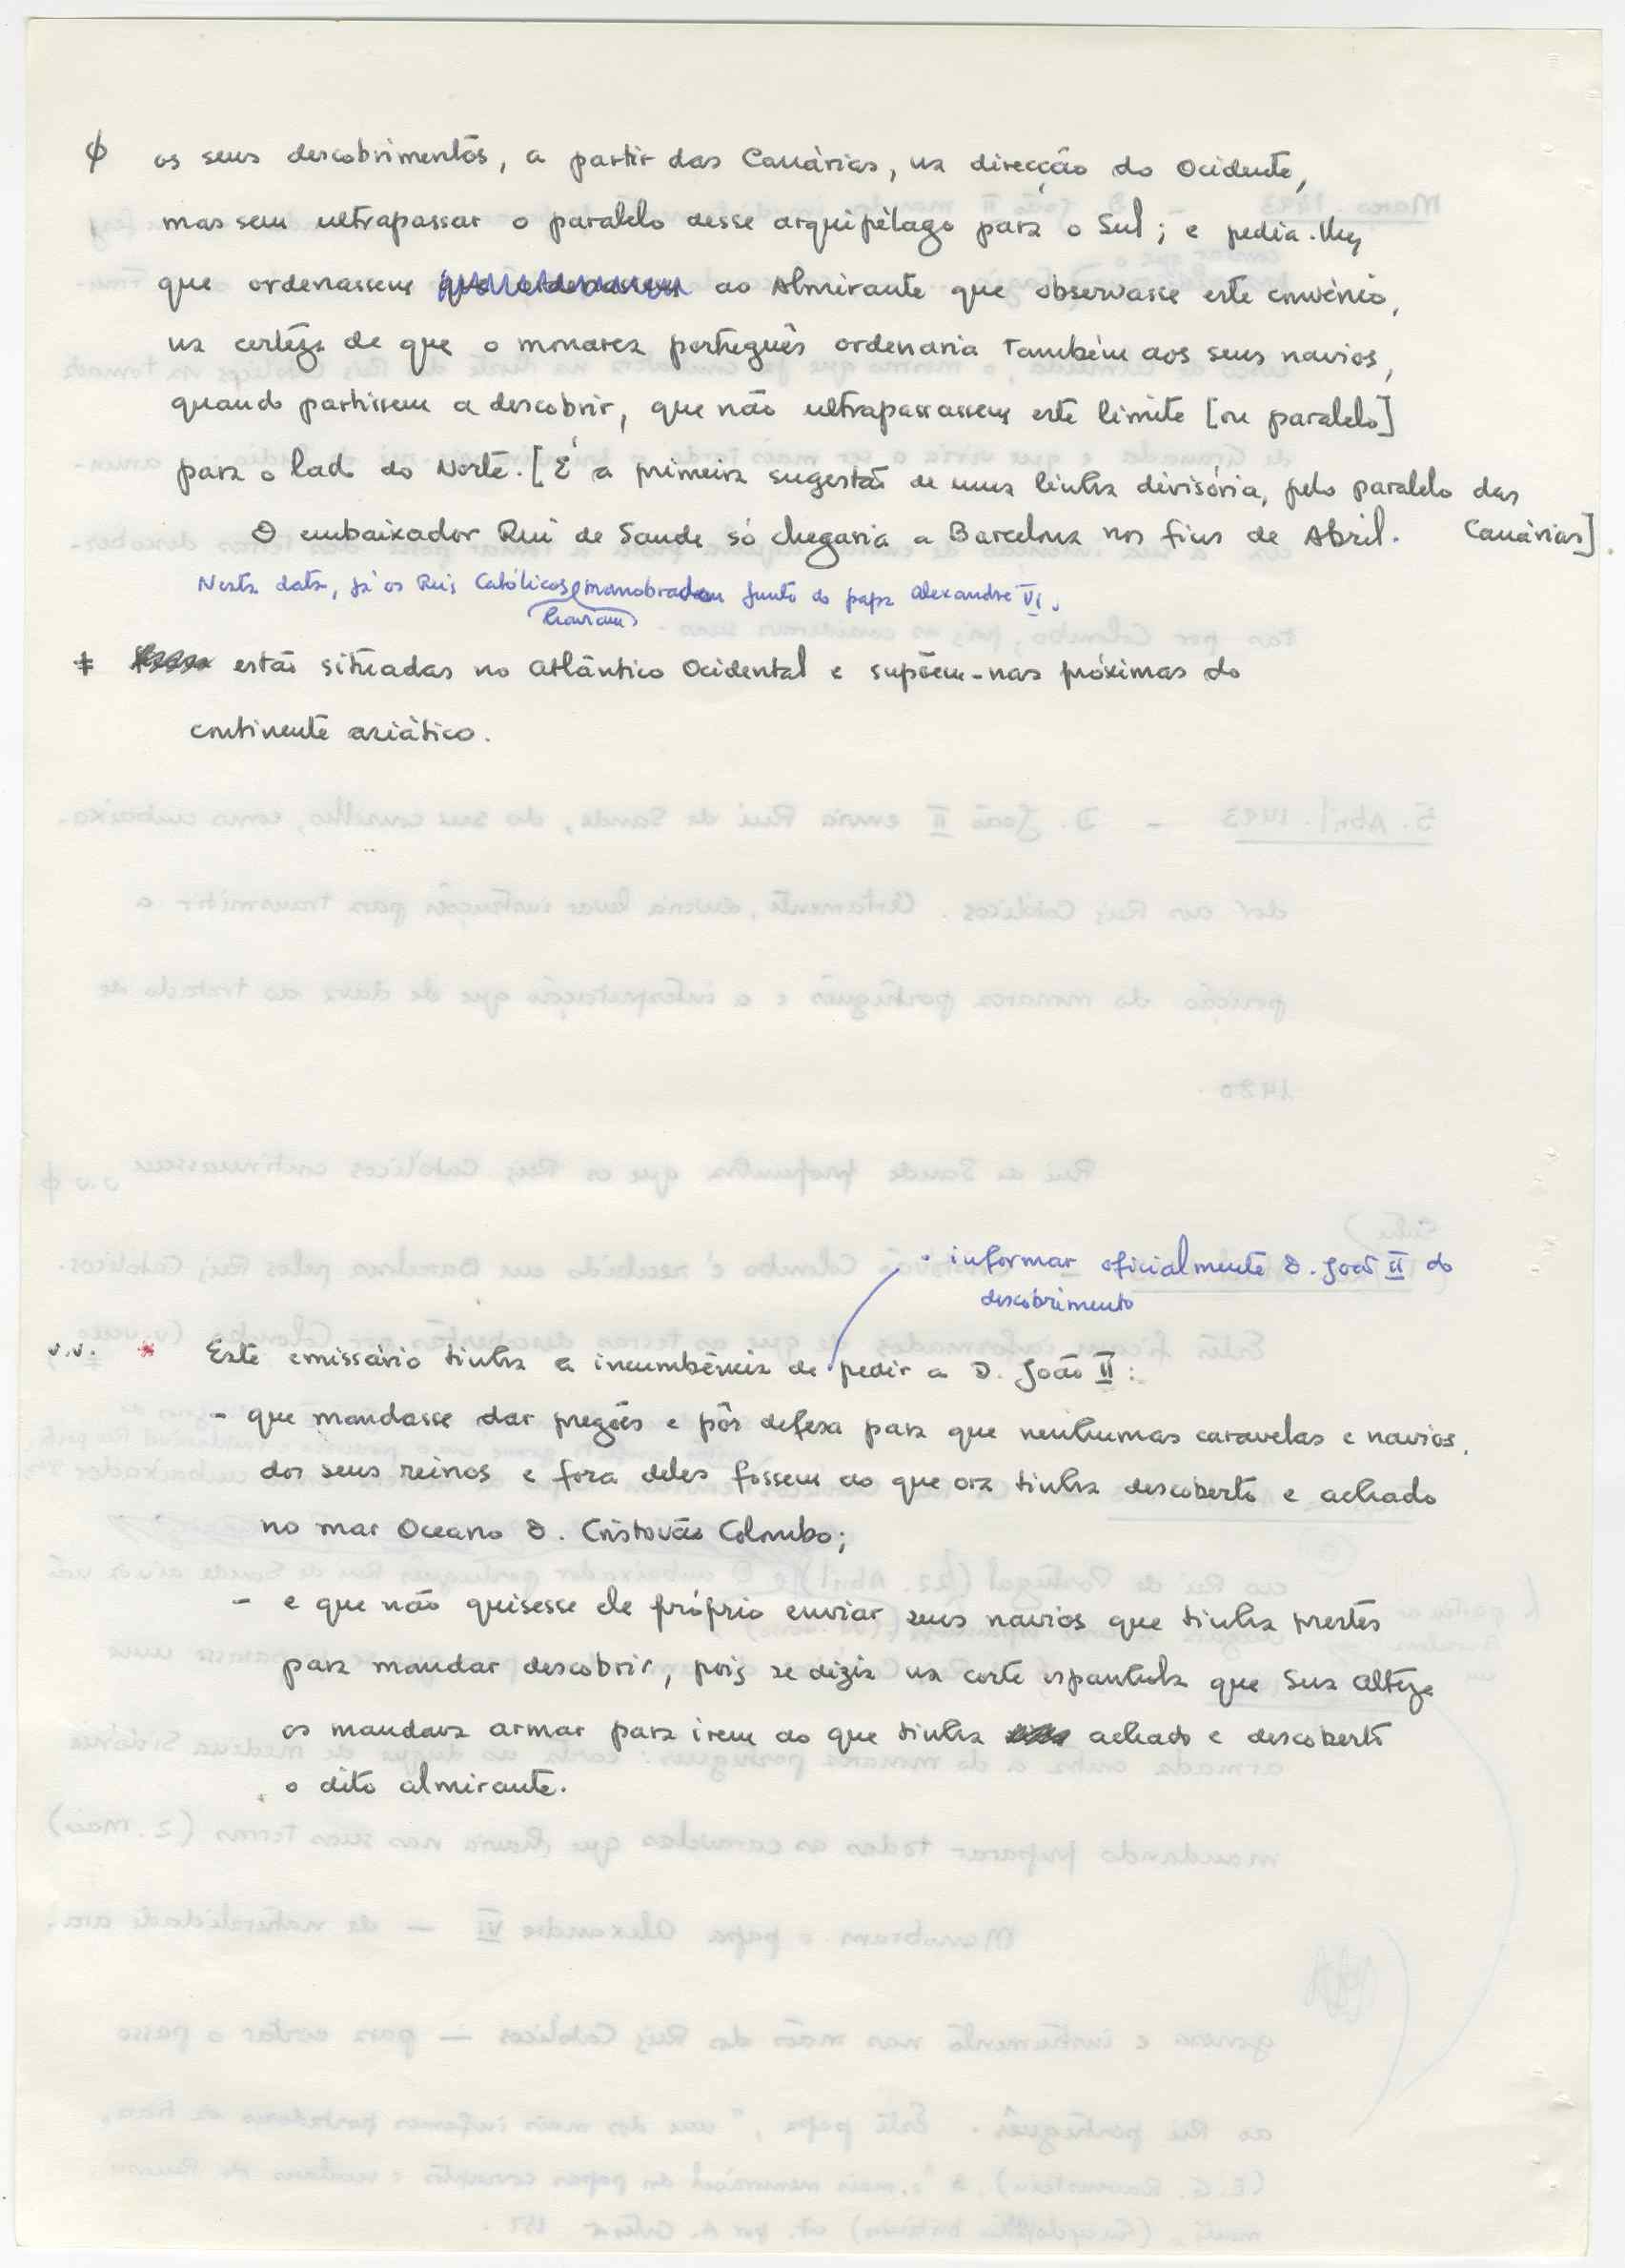 ϕ os seus descobrimentos, a partir das Canárias, na direcção do Ocidente,
mas sem ultrapassar o paralelo desse arquipélago para o Sul; e pedia-lhes
que ordenassem ao Almirante que observasse este convénio,
na certeza de que o monarca português ordenaria também aos seus navios,
quando partissem a descobrir, que não ultrapassassem este limite [ou paralelo]
para o lado do Norte. [É a primeira sugestão de uma linha divisória, pelo paralelo das
Canárias].
O embaixador Rui de Sande só chegaria a Barcelona nos fins de Abril.
Nesta data, já os Reis Católicos haviam manobrado junto do papa Alexandre VI.
ǂ estão situadas no Atlântico Ocidental e supõem-nas próximas do
continente asiático.
· informar oficialmente D. João II do
descobrimento
v.v. * Este emissário tinha a incumbência de pedir a D. João II:
- que mandasse dar pregões e pôr defesa para que nenhumas caravelas e navios
dos seus reinos e fora deles fossem ao que ora tinha descoberto e achado
no mar Oceano D. Cristovão Colombo;
- e que não quisesse ele próprio enviar seus navios que tinha prestes
para mandar descobrir, pois se dizia na corte espanhola que Sua Alteza
os mandava armar para irem ao que tinha achado e descoberto
o dito almirante.